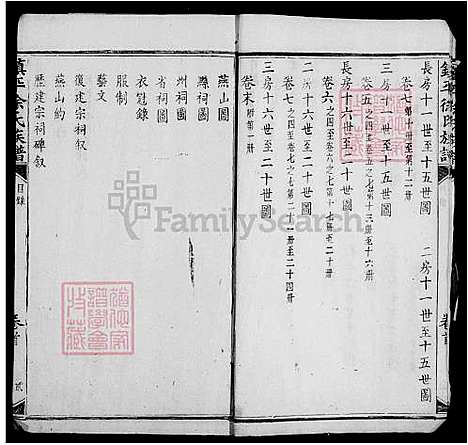 鎮平徐氏族譜
卷七第十冊至第十二冊
長房十一世至十五世圖 二房十一世至十五世圖
三房十一世至十五世圖
卷五之四至卷五之七第十三冊至十六冊
長房十六世至二十世圖
卷六之四至卷六之七第十七冊至二十冊
二房十六世至二十世圖
卷七之四至卷七之七第二十一冊至二十四冊
三房十六世至二十世圖
卷末附第一冊
燕山圖
縣祠圖
州祠圖
省祠圖
衣冠錄
服制
藝文
復建宗祠叙
燕山約
歷建宗祠碑叙
鎮平徐氏族譜
目錄
卷首
貳
卷首
FamilySearch
譜學會
收藏